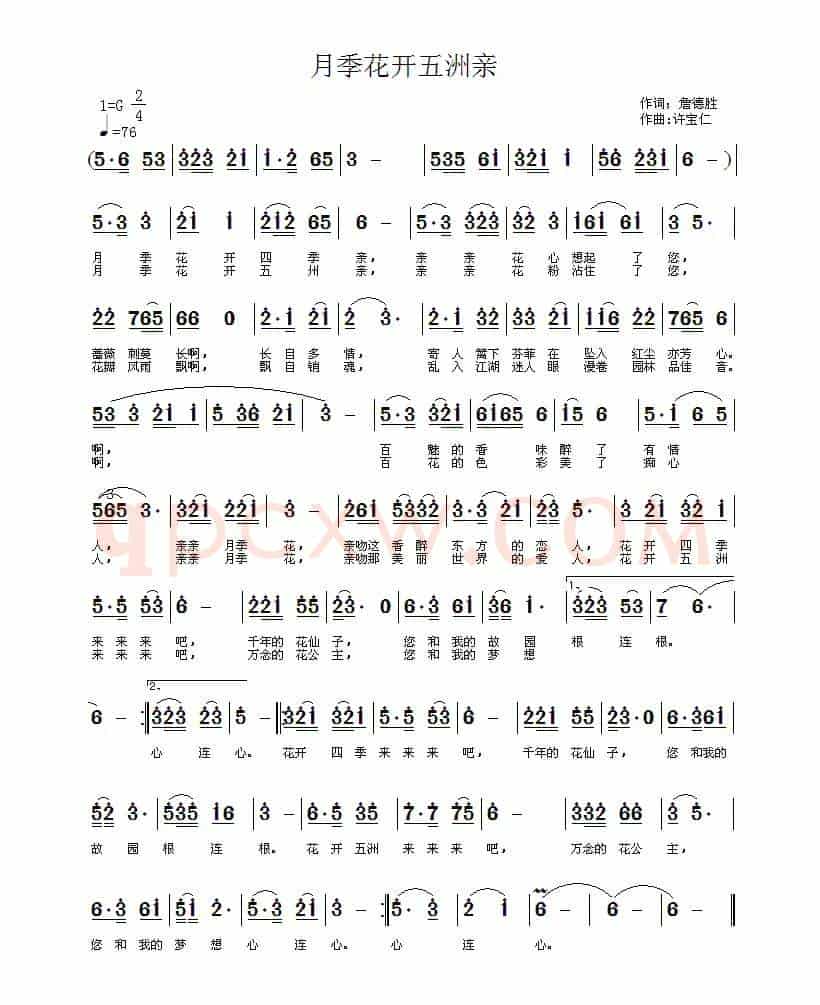 月季花开五洲亲
1=G 2/4
作词：詹德胜
♩=76
作曲:许宝仁
(5·6 53 | 323 21 | 1·2 65 | 3 - | 535 61 | 321 1 | 56 231 | 6 - )|
5·3 3 | 21 1 | 212 65 | 6 - | 5·3 323 | 32 3 | 161 61 | 3 5· |
月 季 花 开 四 季 亲， 亲 亲 花 心 想起 了 您，
月 季 花 开 五 州 亲， 亲 亲 花 粉 沾住 了 您，
22 765 | 66 0 | 2·1 21 | 2 3· | 21 32 | 33 21 | 116 22 | 765 6 |
蔷薇 刺莫 长啊， 长 自 多 情， 寄 人 篱下 芬菲 在 坠入 红尘 亦芳 心。
花瓣 风雨 飘啊， 飘 自 销 魂， 乱 入 江湖 迷人 眼 漫卷 园林 品佳 音。
53 3 21 1 | 5 36 21 | 3 - | 5·3 321 | 6165 6 | 15 6 | 5·1 6 5 |
啊， 百 魅 的 香 味 醉 了 有 情
啊， 百 花 的 色 彩 美 了 痴 心
3
565 3· | 321 221 | 3 - | 261 5332 | 1·2 3 21 | 23 5· | 3 221 321 |
qpcxw.COM
人， 亲亲 月季 花， 亲吻这 香醉 东 方 的 恋 人， 花 开 四 季
人， 亲亲 月季 花， 亲吻那 美丽 世 界 的 爱 人， 花 开 五 洲
1.
5·5 53 | 6 - | 221 55 | 23· 0 | 6·3 61 | 36 1· | 323 53 | 7 6· |
来 来 来 吧， 千年的 花仙 子， 您 和 我的 故 园 根 连 根。
来 来 来 吧， 万念的 花公 主， 您 和 我的 梦 想
2.
6 - :‖ 323 23 | 5 - ‖: 321 321 | 5·5 53 | 6 - | 221 55 | 23·0 | 6·361 |
心 连 心。 花开 四 季 来 来 来 吧， 千年的 花仙 子， 您 和我的
52 3· | 535 16 | 3 - | 6·5 35 | 7·7 75 | 6 - | 332 66 | 2 3· |
故 园 根 连 根。 花 开 五洲 来 来 来 吧， 万念的 花公 主，
6·3 61 | 51 2· | 5·3 21 | 3 - :‖ 5· 3 | 2 1 | 6 - | 6 - | 6 - ‖
您 和 我的 梦 想 心 连 心。 心 开 连 心。